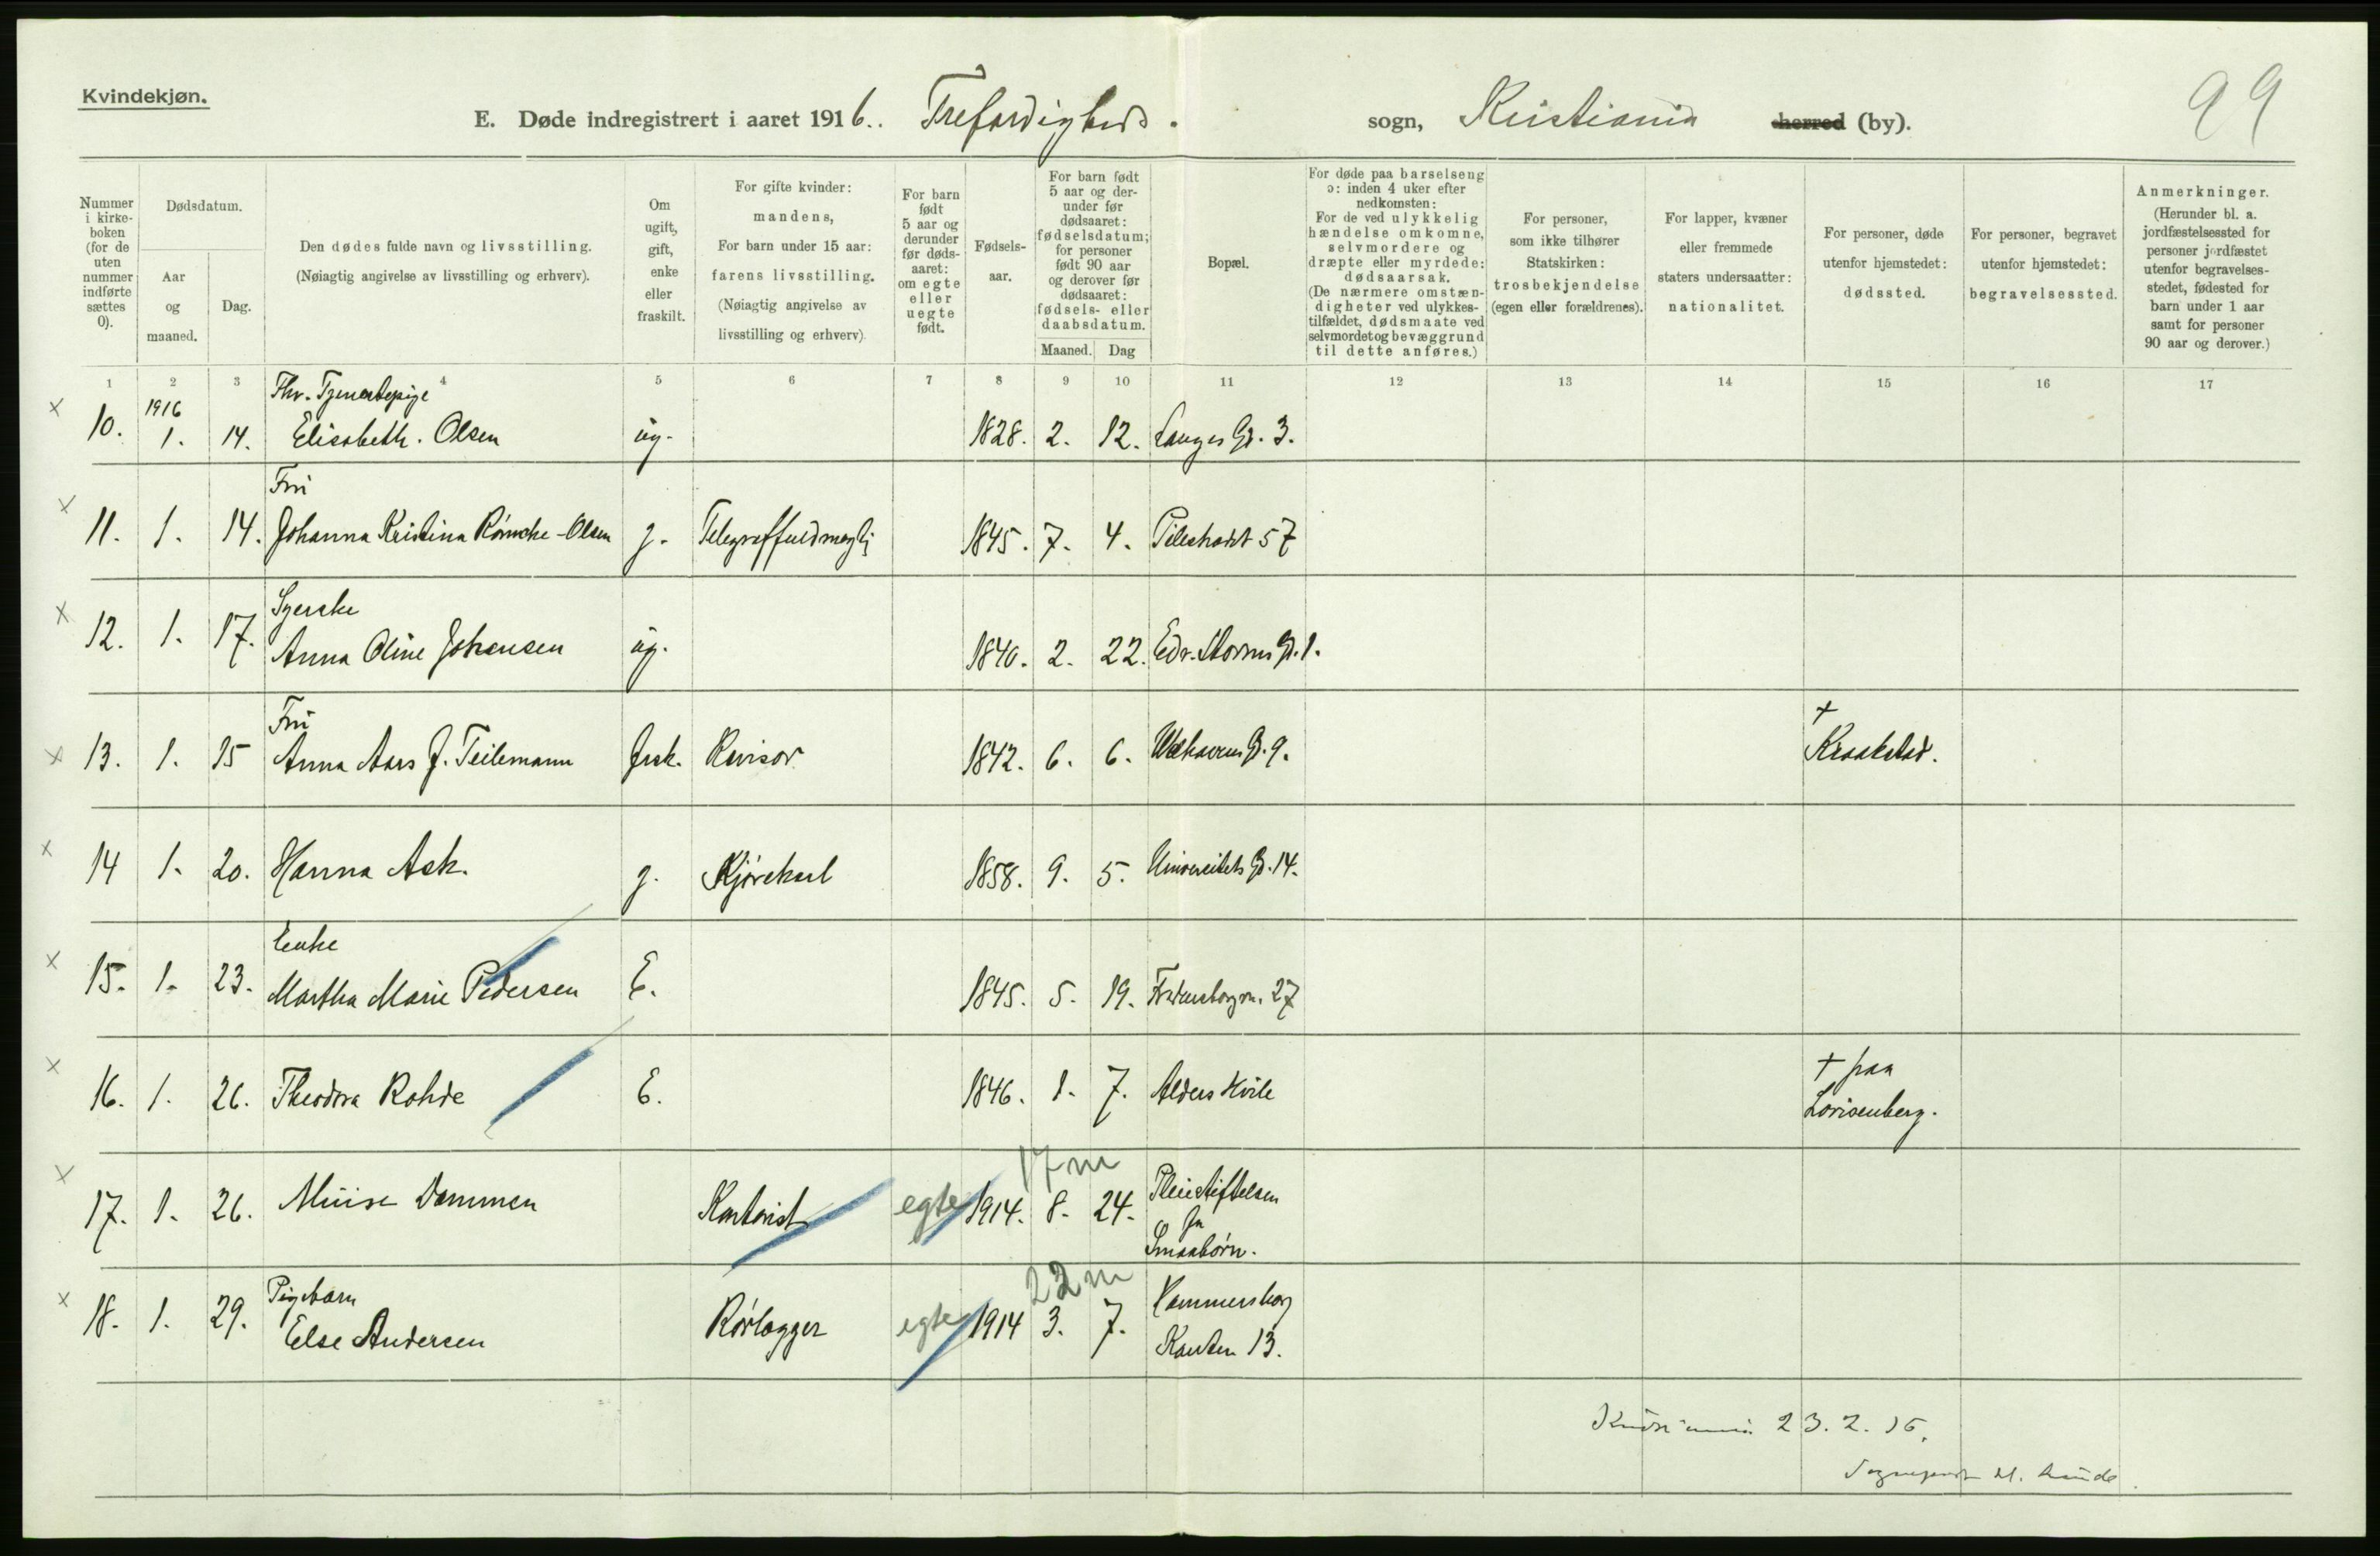 Kvindekjøn.
E. Døde indregistrert i aaret 1916. Trefoldigheds sogn, Kristiania herred (by).
99
Nummer i kirkeboken (for de uten nummer indførte sættes 0).
Dødsdatum.
Aar og maaned.
Dag.
Den dødes fulde navn og livsstilling.
(Nøiagtig angivelse av livsstilling og erhverv).
Om ugift, gift, enke eller fraskilt.
For gifte kvinder: mandens,
For barn under 15 aar: farens livsstilling.
(Nøiagtig angivelse av livsstilling og erhverv).
For barn født 5 aar og derunder før dødsaaret: om egte eller uegte født.
Fødselsaar.
For barn født 5 aar og derunder før dødsaaret: fødselsdatum; for personer født 90 aar og derover før dødsaaret: fødsels- eller daabsdatum.
Maaned. Dag
Bopæl.
For døde paa barselseng ɔ: inden 4 uker efter nedkomsten:
For de ved ulykkelig hændelse omkomne, selvmordere og dræpte eller myrdede: dødsaarsak.
(De nærmere omstændigheter ved ulykkestilfældet, dødsmaate ved selvmordet og bevæggrund til dette anføres.)
For personer, som ikke tilhører Statskirken: trosbekjendelse (egen eller forældrenes).
For lapper, kvæner eller fremmede staters undersaatter: nationalitet.
For personer, døde utenfor hjemstedet: dødssted.
For personer, begravet utenfor hjemstedet: begravelsessted.
Anmerkninger.
(Herunder bl. a. jordfæstelsessted for personer jordfæstet utenfor begravelsesstedet, fødested for barn under 1 aar samt for personer 90 aar og derover.)
1 2 3 4 5 6 7 8 9 10 11 12 13 14 15 16 17
1916 Fhv. Tjenestepige
10. 1. 14. Elisabeth. Olsen ug. 1828. 2. 12. Langes Gd. 3.
Fru
11. 1. 14. Johanna Kristina Rømcke-Olsen g. Telegraffuldmægtig 1845. 7. 4. Pilestradet 57
Syerske
12. 1. 17. Anna Oline Johansen ug. 1840. 2. 22. Edv. Storms Gd. 1.
Fru
13. 1. 15 Anna Aars f. Teilemann frsk. Revisor 1842. 6. 6. Welhavens Gd. 9. † Kraakstad.
14 1. 20. Hanna Ask. g. Kjørekarl 1858. 9. 5. Universitets Gd. 14.
Enke
15. 1. 23. Martha Marie Pedersen E. 1845. 5. 19. Fredensborgvn. 27
16. 1. 26. Theodora Rohde E. 1846. 1. 7. Alders Hvile † paa Lovisenberg.
17 m
17. 1. 26. Dammen Kontorist egte 1914. 8. 24. Pleiestiftelsen for Smaabørn.
22 m
Pigebarn
18. 1. 29. Else Andersen Rørlægger egte 1914 3. 7. Hammersborg Kanten 13.
Kristiania 23. 2. 16.